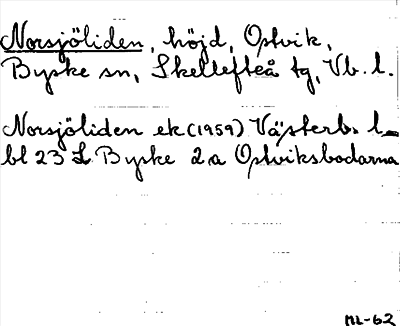 Norsjöliden, höjd, Ostvik,
Byske sn, Skellefteå tg, Vb. l.
Norsjöliden ek (1959) Västerb. l.
bl 23 L Byske 2a Ostviksbodarna
ML-62